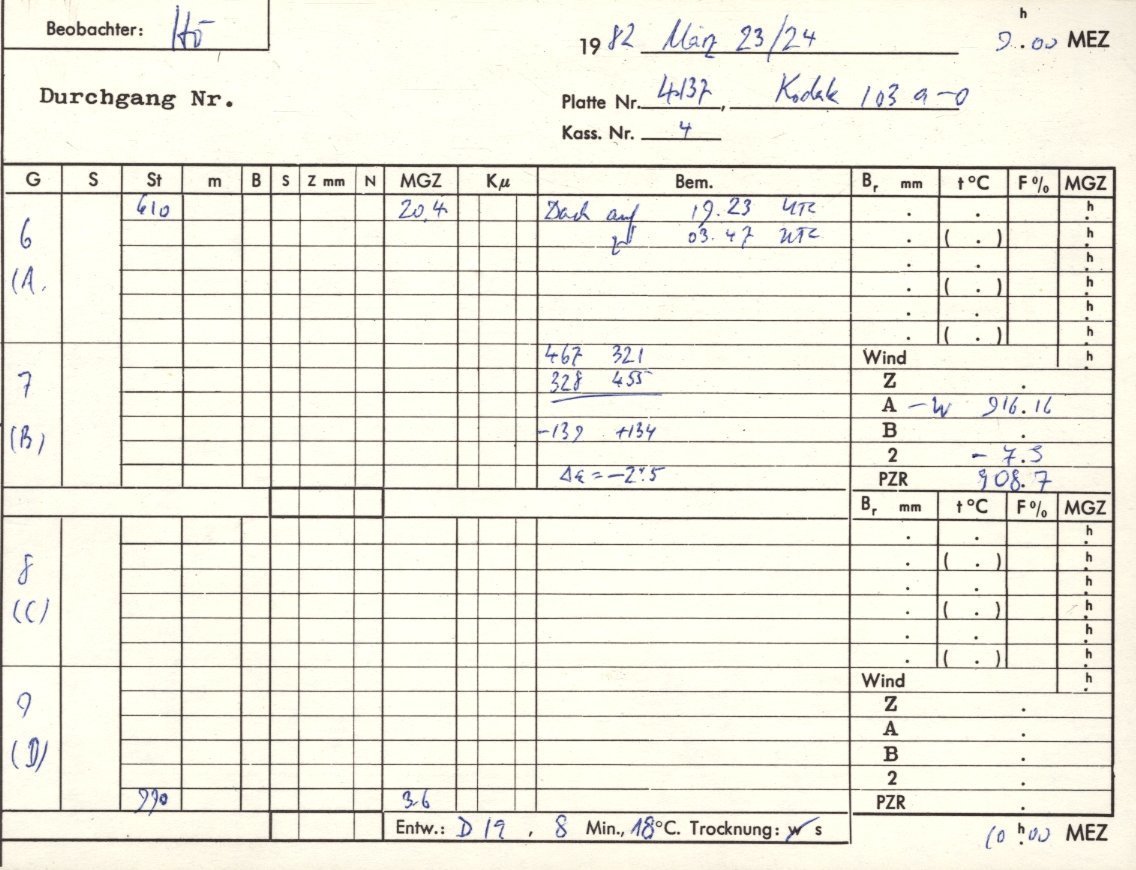 Beobachter: Hö
h
19 82 März 23/24 9.00 MEZ
Durchgang Nr.
Platte Nr. 4137, Kodak 103 a-0
Kass. Nr. 4
G S St m B S Z mm N MGZ Kμ Bem. Br mm t °C F% MGZ
610 20,4 Dach auf 19.23 UTC . . h
6 zu 03.47 UTC . ( . ) h
. . h
(A. . ( . ) h
. . h
. ( . ) h
467 321 Wind h
7 328 455 Z .
A -W 916.16
(B) -139 +134 B .
2 - 7.5
Δε = -2".5 PZR 908.7
Br mm t °C F% MGZ
. . h
8 . ( . ) h
. . h
(C) . ( . ) h
. . h
. ( . ) h
Wind h
9 Z .
A .
(D) B .
2 .
990 3.6 PZR .
Entw.: D 19, 8 Min., 18°C. Trocknung: w s
10 h 00 MEZ